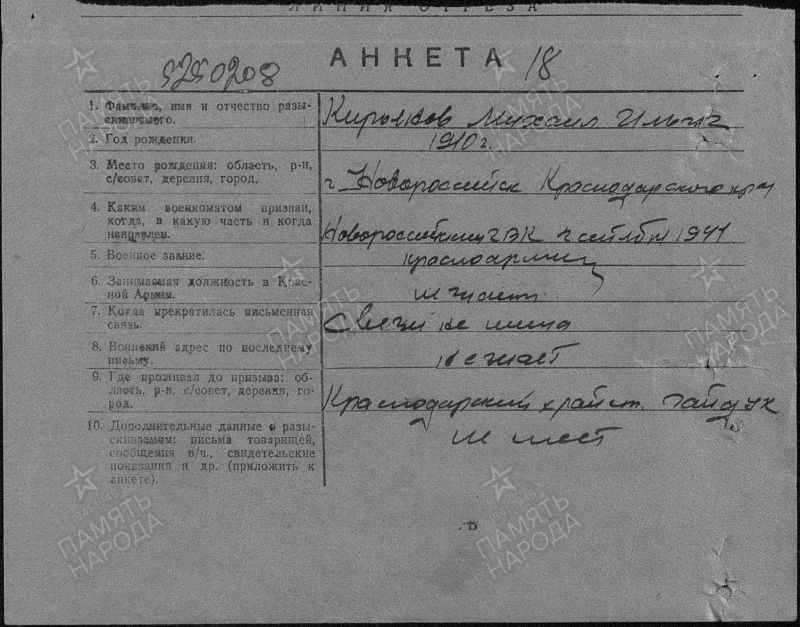 ЛИНИЯ ОТРЕЗА
5250208
АНКЕТА 18
1. Фамилия, имя и отчество разы-
скиваемого.
Михаил Ильич
2. Год рождения.
1910 г.
3. Место рождения: область, р-н,
с/совет, деревня, город.
г. Новороссийск Краснодарского края
4. Каким военкоматом призван,
когда, в какую часть и когда
направлен.
Новороссийским ГВК 1941
5. Военное звание.
красноармеец
6. Занимаемая должность в Крас-
ной Армии.
не знает
7. Когда прекратилась письменная
связь.
Связи не имела
8. Воинский адрес по последнему
письму.
не знает
9. Где проживал до призыва: об-
ласть, р-н, с/совет, деревня, го-
род.
Краснодарский край ст. Гайдук
10. Дополнительные данные о разы-
скиваемом: письма товарищей,
сообщения в/ч., свидетельские
показания и др. (приложить к
анкете).
не имеет
ПАМЯТЬ
НАРОДА
ПАМЯТЬ
НАРОДА
ПАМЯТЬ
НАРОДА
ПАМЯТЬ
НАРОДА
ПАМЯТЬ
НАРОДА
ПАМЯТЬ
НАРОДА